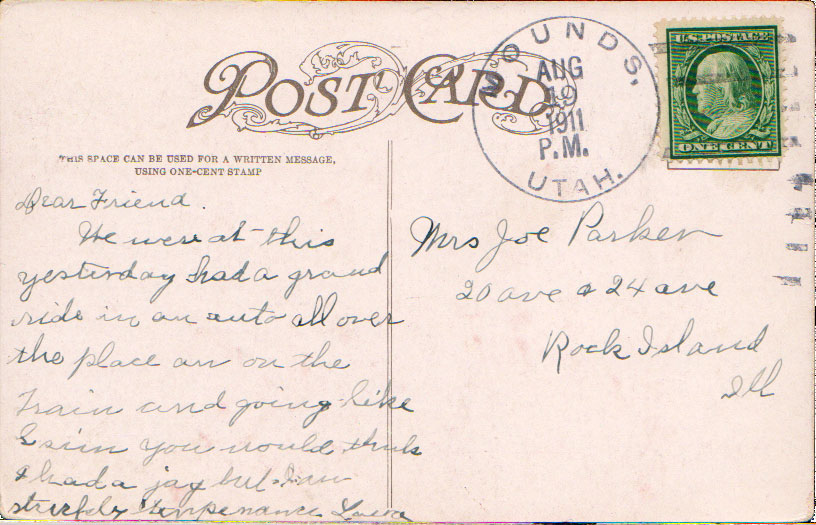 POST CARD
THIS SPACE CAN BE USED FOR A WRITTEN MESSAGE,
USING ONE-CENT STAMP
MOUNDS,
AUG
19
1911
P.M.
UTAH.
U.S. POSTAGE
ONE CENT
Dear Friend.
We were at this
yesterday had a grand
ride in an auto all over
the place am on the
train and going like
you would think
I had a jag but I am
strictly Temperance
Mrs Joe Parker
20 ave & 24 ave
Rock Island
Ill